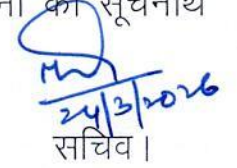 की सूचनार्थ
24/3/2026
सचिव।